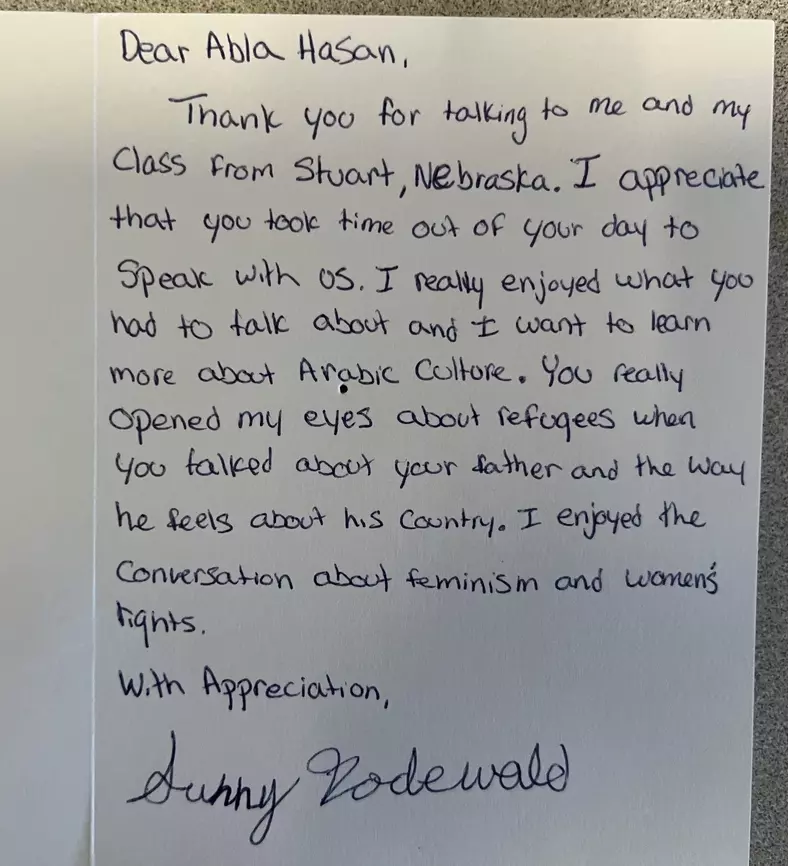 Dear Abla Hasan,
Thank you for talking to me and my
Class from Stuart, Nebraska. I appreciate
that you took time out of your day to
Speak with us. I really enjoyed what you
had to talk about and I want to learn
more about Arabic Culture. You really
opened my eyes about refugees when
you talked about your father and the way
he feels about his Country. I enjoyed the
Conversation about feminism and women's
rights.
With Appreciation,
Sunny Rodewald